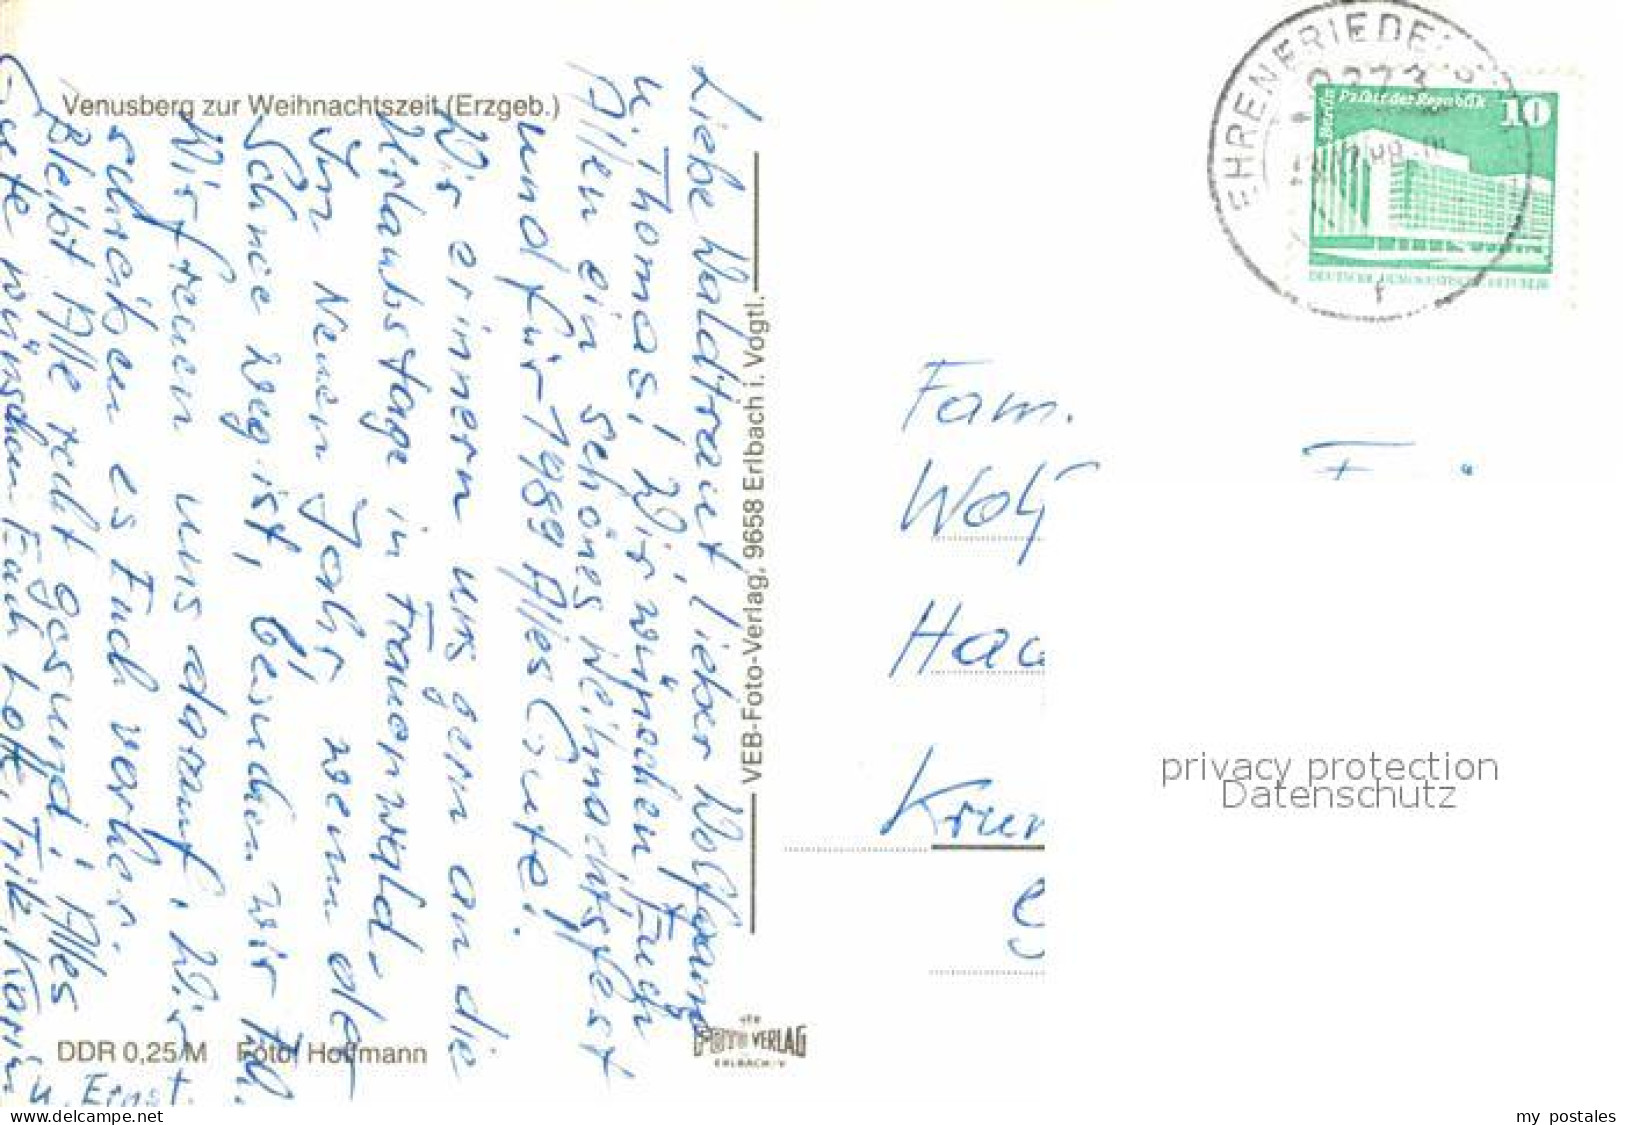 Venusberg zur Weihnachtszeit (Erzgeb.)
Liebe Waldtraut, lieber Wolfgang
u. Thomas! Wir wünschen Euch
Allen ein schönes Weihnachtsfest
und für 1989 Alles Gute!
Wir erinnern uns gern an die
Urlaubstage in Frauenwald.
Im Neuen Jahr, wenn der
Schnee weg ist, besuchen wir
Wir freuen uns darauf. Wir
schreiben es Euch vorher.
Bleibt Alle recht gesund! Alles
Gute wünschen Euch Lotte, Karin
u. Ernst.
VEB-Foto-Verlag, 9658 Erlbach i. Vogtl.
DDR 0,25 M Foto: Hoffmann
FOTO VERLAG
ERLBACH/V
EHRENFRIEDE
Berlin Palast der Republik 10
DEUTSCHE DEMOKRATISCHE REPUBLIK
Fam.
Wolf
Haa
Krum
privacy protection
Datenschutz
www.delcampe.net
my_postales